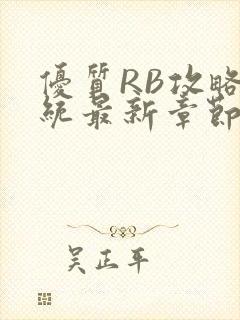 優質RB攻略
統最新章節
吴正平